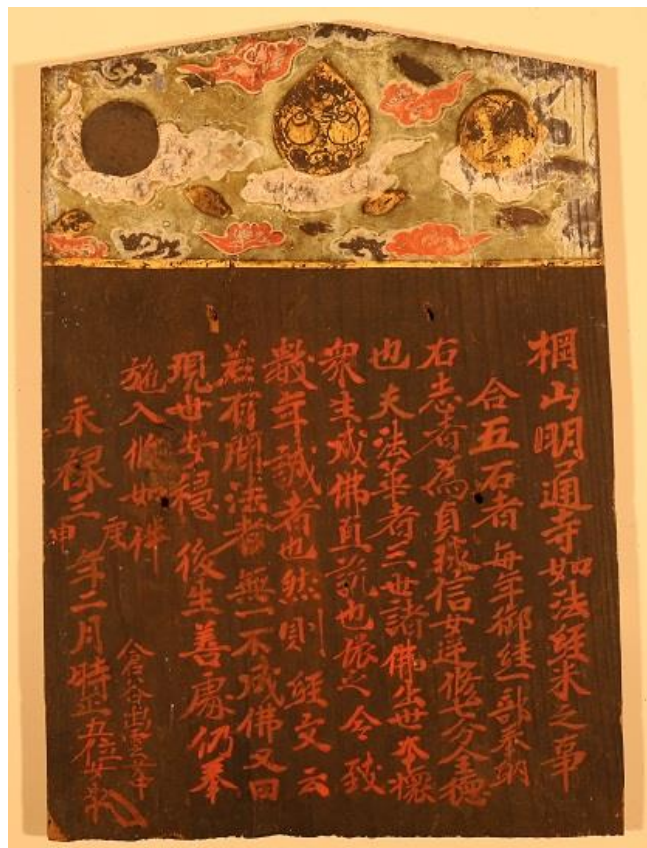 棡山明通寺如法経米之事
合五石者毎年御経一部奉納
右志者為貞珠信女逆修七分全徳
也夫法華者三世諸佛出世本懐
衆生成佛直道也依之令致
数年誠者也然則経文云
若有聞法者無一不成佛又曰
現世安穏後生善處仍奉
施入所如件
永禄三庚申年二月時正